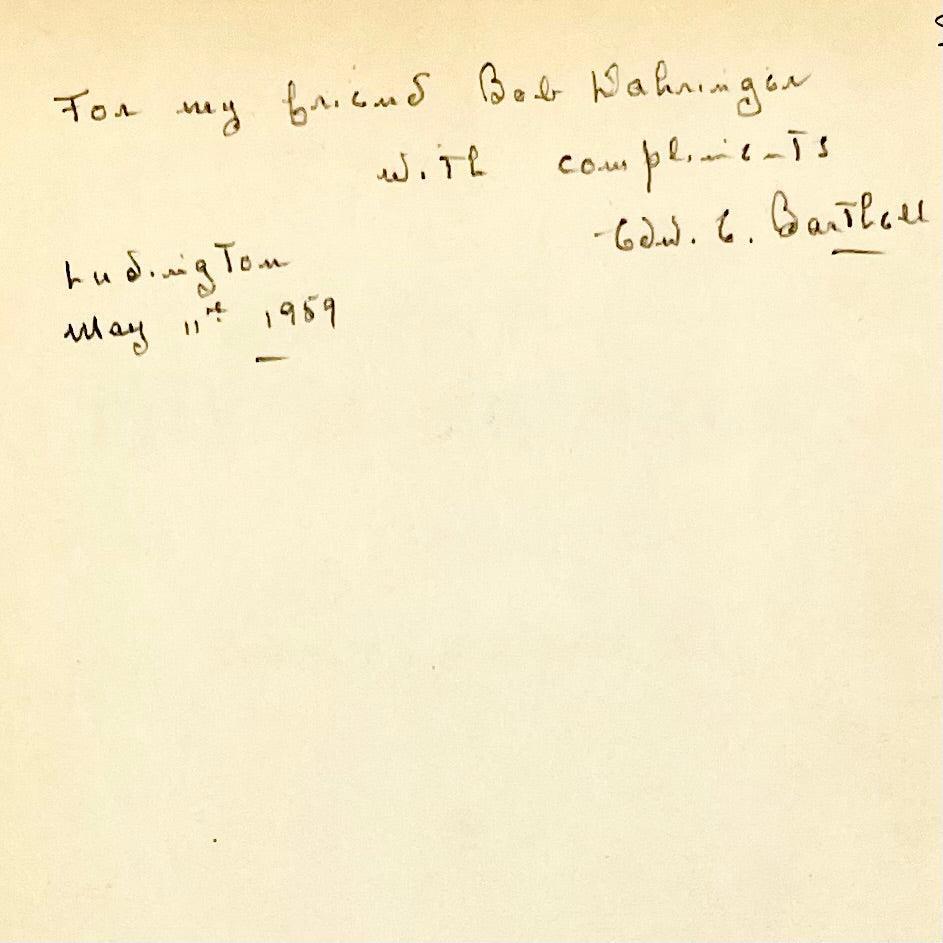 For my friend Bob Wahringer
with compliments
-Edw. E. Barthell
Ludington
May 11th 1959